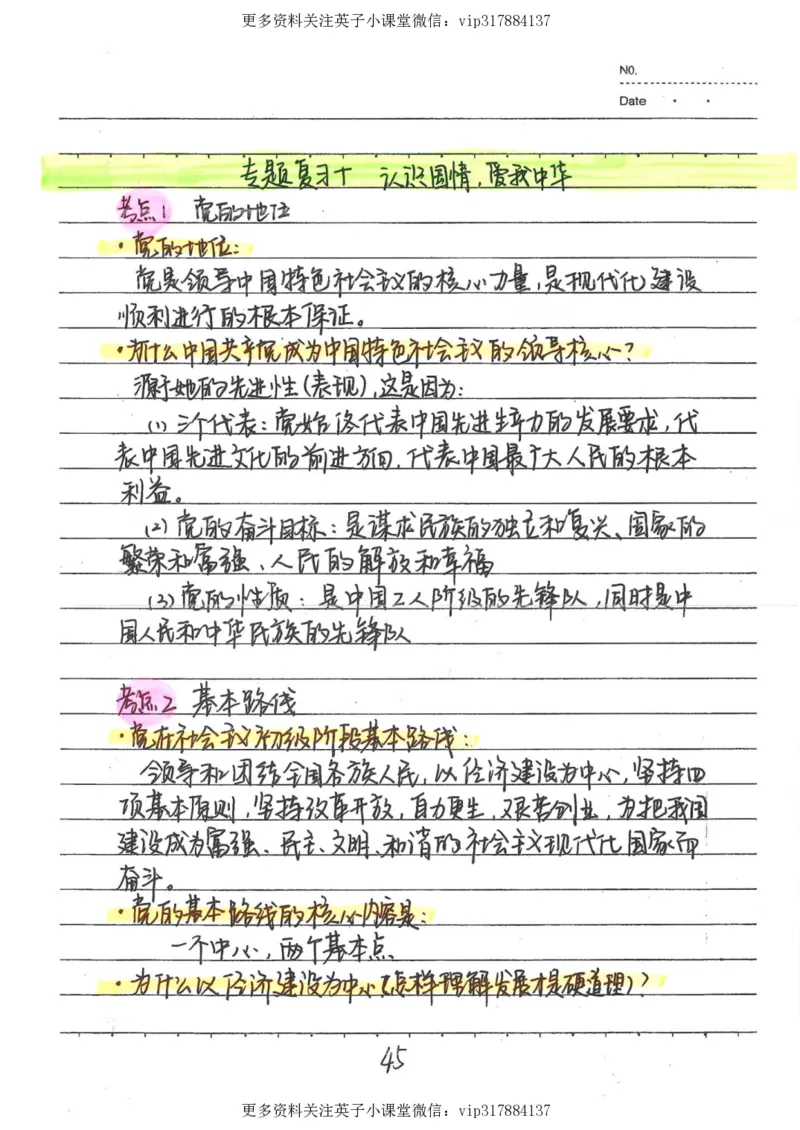 更多资料关注英子小课堂微信：vip317884137
NO.
Date
专题复习十 认识国情，爱我中华
考点1 党的地位
·党的地位：
党是领导中国特色社会主义的核心力量，是现代化建设
顺利进行的根本保证。
·为什么中国共产党成为中国特色社会主义的领导核心？
源于她的先进性（表现），这是因为：
(1) 三个代表：党始终代表中国先进生产力的发展要求，代
表中国先进文化的前进方向，代表中国最广大人民的根本
利益。
(2) 党的奋斗目标：是谋求民族的独立和复兴、国家的
繁荣和富强、人民的解放和幸福
(3) 党的性质：是中国工人阶级的先锋队，同时是中
国人民和中华民族的先锋队
考点2 基本路线
·党在社会主义初级阶段基本路线：
领导和团结全国各族人民，以经济建设为中心，坚持四
项基本原则，坚持改革开放，自力更生，艰苦创业，为把我国
建设成为富强、民主、文明、和谐的社会主义现代化国家而
奋斗。
·党的基本路线的核心内容是：
一个中心，两个基本点
·为什么以经济建设为中心（怎样理解发展才是硬道理）？
45
更多资料关注英子小课堂微信：vip317884137